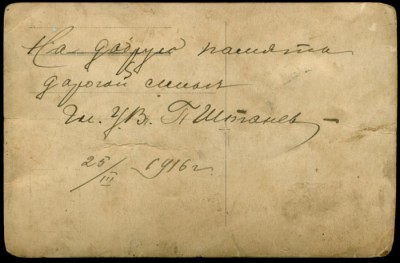 На добрую память
дорогой
Гл. У.В. П Штанев
25/III 1916 г.